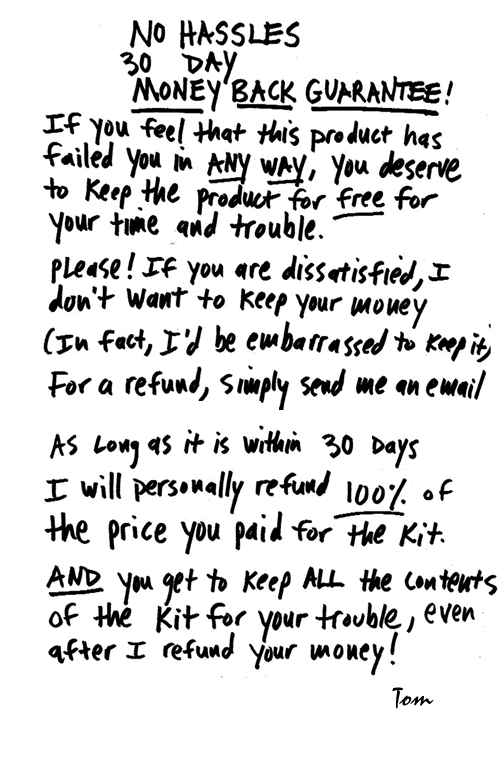 NO HASSLES
30 DAY
MONEY BACK GUARANTEE!
If you feel that this product has
failed you in ANY WAY, you deserve
to keep the product for free for
your time and trouble.
please! If you are dissatisfied, I
don't want to keep your money
(In fact, I'd be embarrassed to keep it)
For a refund, simply send me an email
As Long as it is within 30 Days
I will personally refund 100% of
the price you paid for the Kit.
AND you get to keep ALL the contents
of the Kit for your trouble, even
after I refund your money!
Tom